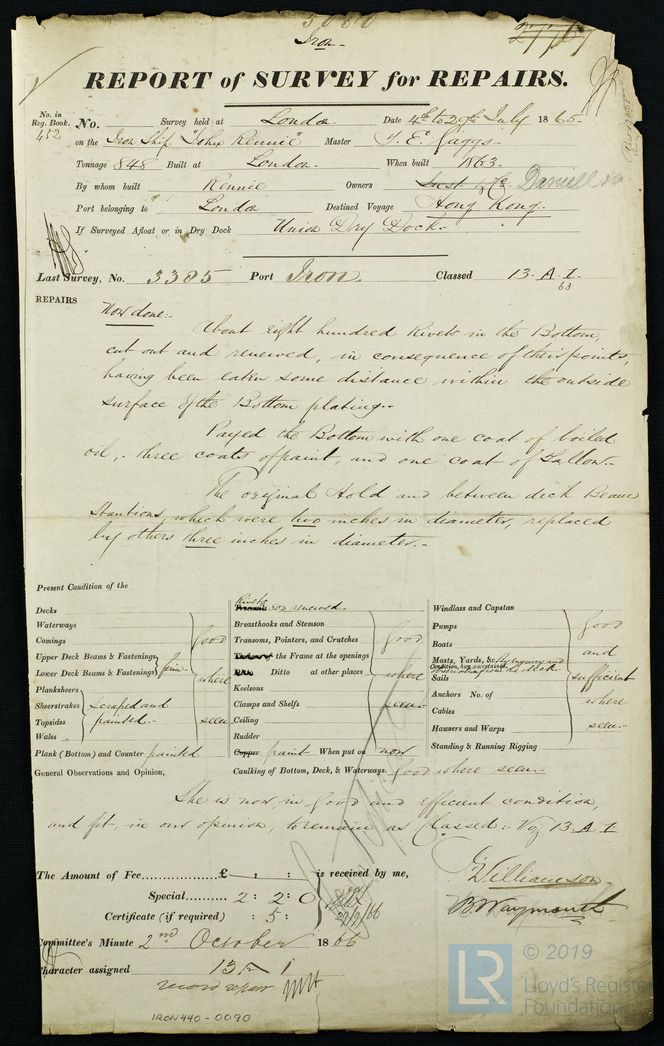 5080
Iron.
REPORT of SURVEY for REPAIRS.
No. in Reg. Book. 452 No. Survey held at London Date 4th to 29th July 1865.
on the Iron Ship "John Rennie" Master J. E. Jaggs.
Tonnage 848 Built at London. When built 1863.
By whom built Rennie Owners
Port belonging to London Destined Voyage Hong Kong.
If Surveyed Afloat or in Dry Dock Union Dry Dock.
Last Survey, No. 3385 Port Iron. Classed 13. A. 1.
63
REPAIRS Now done:-
About eight hundred Rivets in the Bottom,
cut out and renewed, in consequence of their points,
having been eaten some distance within the outside
surface of the Bottom plating.-
Payed the Bottom with one coat of boiled
oil, three coats of paint, and one coat of Tallow.-
The original Hold and between deck Beam
Stantions, which were two inches in diameter, replaced
by others three inches in diameter.-
Present Condition of the
Decks
Waterways
Comings
Upper Deck Beams & Fastenings
Lower Deck Beams & Fastenings
good where seen
Planksheers
Sheerstrakes
Topsides
Wales
scraped and painted.-
Plank (Bottom) and Counter painted
General Observations and Opinion,
Rivets 800 renewed.
Breasthooks and Stemson
Transoms, Pointers, and Crutches
the Frame at the openings
Ditto at other places
Keelsons
Clamps and Shelfs
Ceiling
Rudder
good where seen.-
Copper paint When put on now
Caulking of Bottom, Deck, & Waterways. good where seen.-
Windlass and Capstan
Pumps
Boats
Masts, Yards, &c.
Condition, how ascertained
Sails
Anchors No. of
Cables
Hawsers and Warps
Standing & Running Rigging
good and sufficient where seen.-
She is now, in good and efficient condition,
and fit, in our opinion, to remain as Classed: Viz 13 A 1
The Amount of Fee £ : : is received by me,
Special 2 : 2 : 0
Certificate (if required) : 5 :
G Williamson
B. Waymouth
Committee's Minute 2nd October 1866
Character assigned 13 A 1
record repair
IRON440-0090
LR
© 2019
Lloyd's Register
Foundation